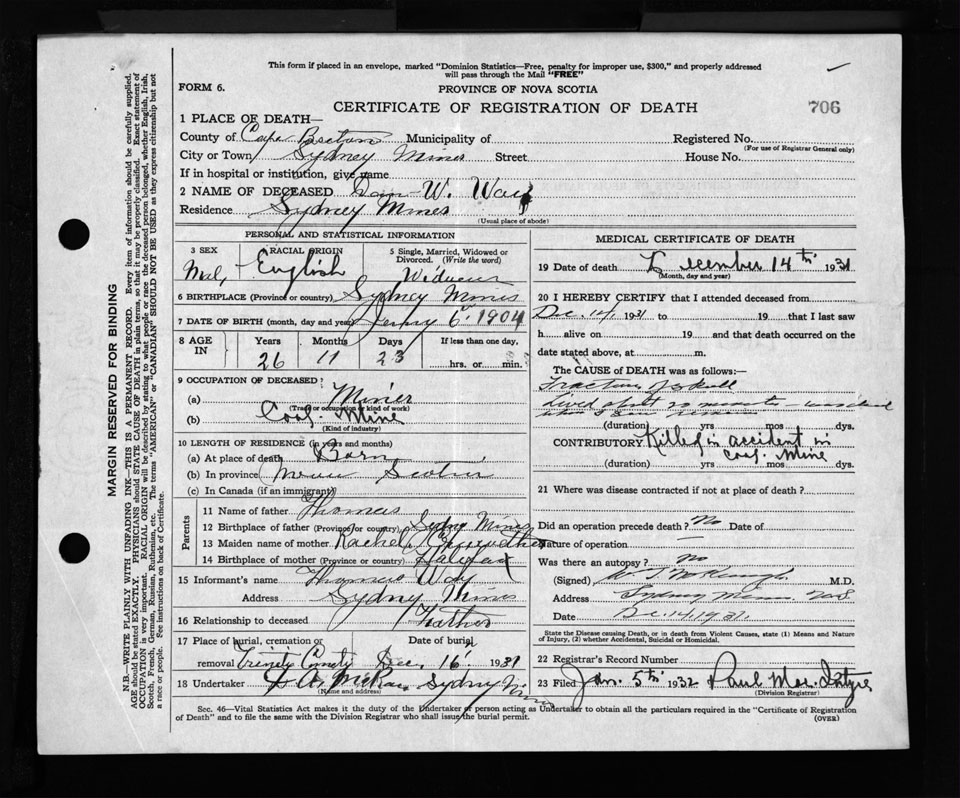 This form if placed in an envelope, marked "Dominion Statistics—Free, penalty for improper use, $300," and properly addressed
will pass through the Mail "FREE"
FORM 6.
PROVINCE OF NOVA SCOTIA
CERTIFICATE OF REGISTRATION OF DEATH
706
1 PLACE OF DEATH—
County of Cape Breton Municipality of Registered No.
(For use of Registrar General only)
City or Town Sydney Mines Street House No.
If in hospital or institution, give name
2 NAME OF DECEASED W. Way
Residence Sydney Mines
(Usual place of abode)
PERSONAL AND STATISTICAL INFORMATION
3 SEX RACIAL ORIGIN 5 Single, Married, Widowed or
Divorced. (Write the word)
Male English Widower
6 BIRTHPLACE (Province or country) Sydney Mines
7 DATE OF BIRTH (month, day and year) 6 1904
8 AGE IN Years Months Days If less than one day,
26 11 23 hrs. or min.
9 OCCUPATION OF DECEASED
(a) Miner
(Trade or occupation or kind of work)
(b) Coal Mine
(Kind of industry)
10 LENGTH OF RESIDENCE (in years and months)
(a) At place of death Born
(b) In province Nova Scotia
(c) In Canada (if an immigrant)
Parents
11 Name of father Thomas
12 Birthplace of father (Province or country) Sydney Mines
13 Maiden name of mother Rachel
14 Birthplace of mother (Province or country) Halifax
15 Informant's name Thomas Way
Address Sydney Mines
16 Relationship to deceased Father
17 Place of burial, cremation or Date of burial
removal Trinity Dec. 16 1931
18 Undertaker McRae Sydney Mines
(Name and address)
MEDICAL CERTIFICATE OF DEATH
19 Date of death December 14th 1931
(Month, day and year)
20 I HEREBY CERTIFY that I attended deceased from
Dec. 14, 1931 to 19 that I last saw
h alive on 19 and that death occurred on the
date stated above, at m.
The CAUSE of DEATH was as follows:
Fracture of skull
Lived about 20 minutes
(duration) yrs mos dys.
CONTRIBUTORY Killed in accident in
Coal Mine
(duration) yrs mos dys.
21 Where was disease contracted if not at place of death?
Did an operation precede death? No Date of
Nature of operation —
Was there an autopsy? No
(Signed) M.D.
Address Sydney Mines N.S.
Date Dec. 14, 1931.
State the Disease causing Death, or in death from Violent Causes, state (1) Means and Nature
of Injury, (2) whether Accidental, Suicidal or Homicidal.
22 Registrar's Record Number
23 Filed Jan. 5th 1932 Paul Mac Intyre
(Division Registrar)
Sec. 46—Vital Statistics Act makes it the duty of the Undertaker or person acting as Undertaker to obtain all the particulars required in the "Certificate of Registration
of Death" and to file the same with the Division Registrar who shall issue the burial permit.
(OVER)
MARGIN RESERVED FOR BINDING
N.B.—WRITE PLAINLY WITH UNFADING INK—THIS IS A PERMANENT RECORD. Every item of information should be carefully supplied.
AGE should be stated EXACTLY. PHYSICIANS should STATE CAUSE OF DEATH in plain terms, so that it may be properly classified. Exact statement of
OCCUPATION is very important. RACIAL ORIGIN will be described by stating to what people or race the deceased person belonged, whether English, Irish,
Scotch, French, German, Russian, Ruthenian, etc. The terms "AMERICAN" or "CANADIAN" SHOULD NOT BE USED as they express citizenship but not
a race or people. See instructions on back of Certificate.